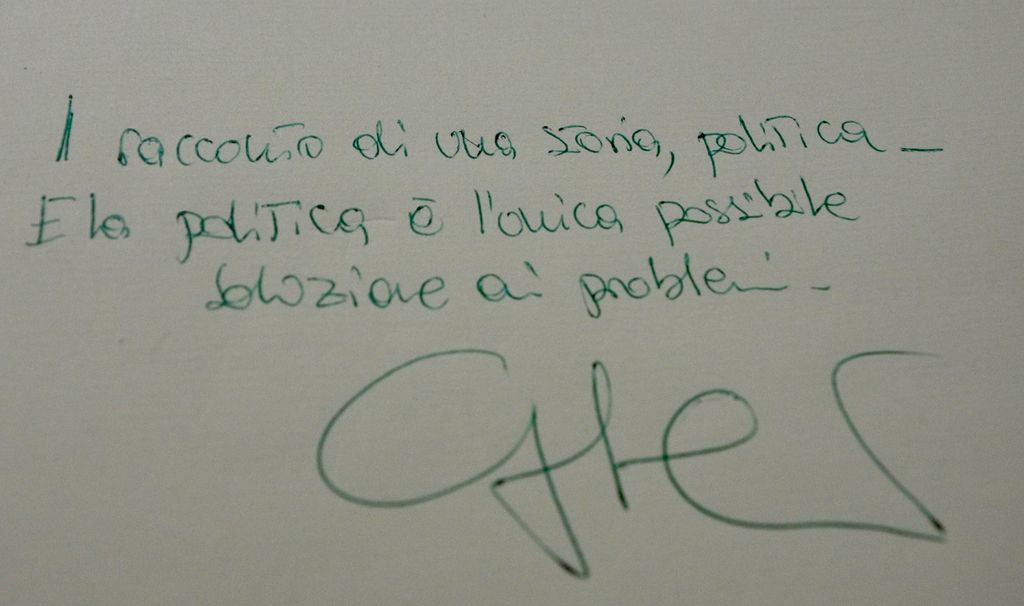 Il racconto di una storia, politica _
E la politica è l'unica possibile
soluzione ai problemi. _